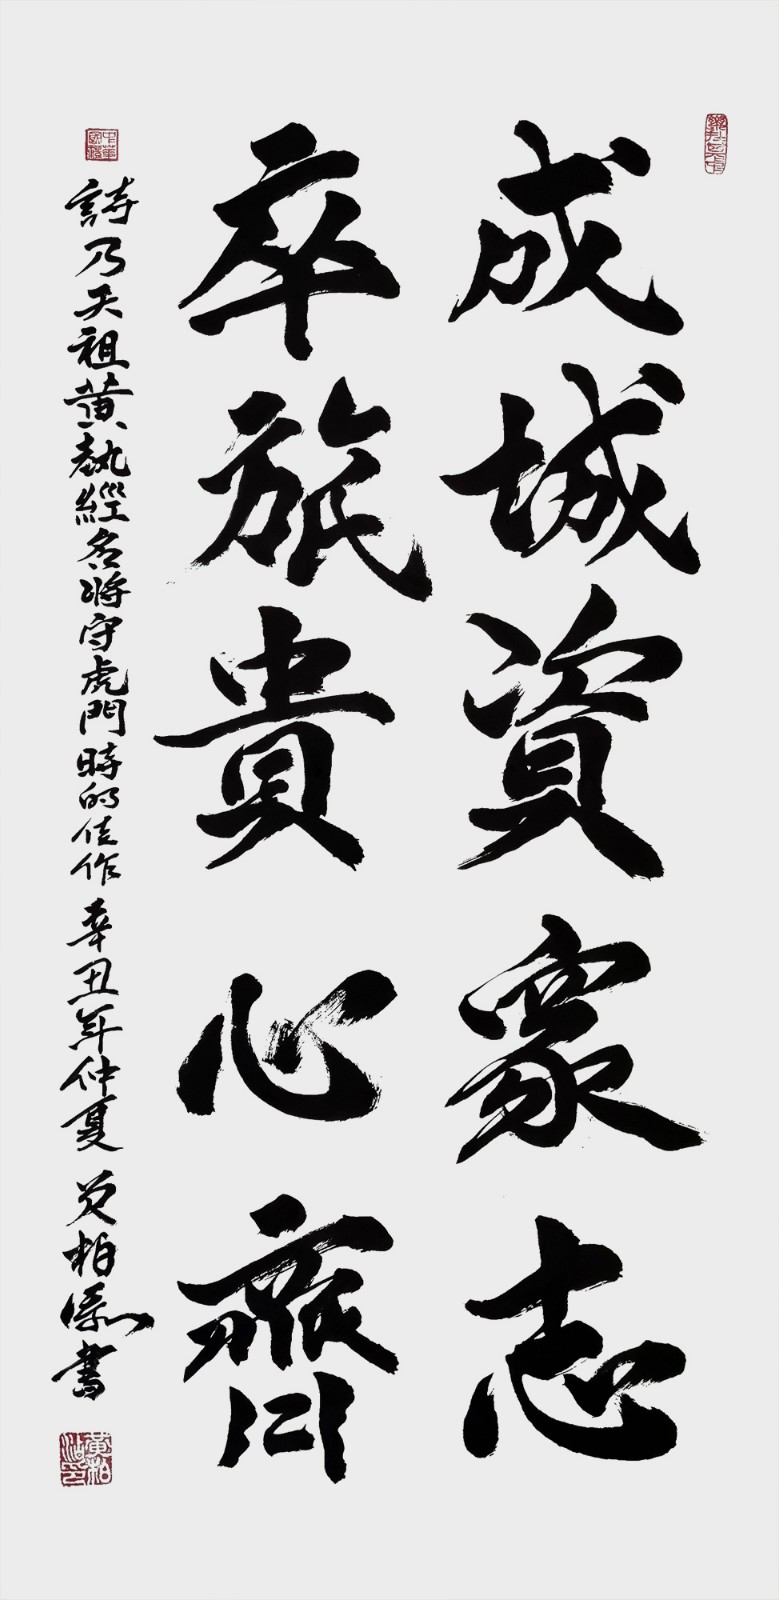 成城資衆志
卒旅貴心齊
詩乃天祖黄執經名將守虎門時的佳作 辛丑年仲夏 黄柏添書